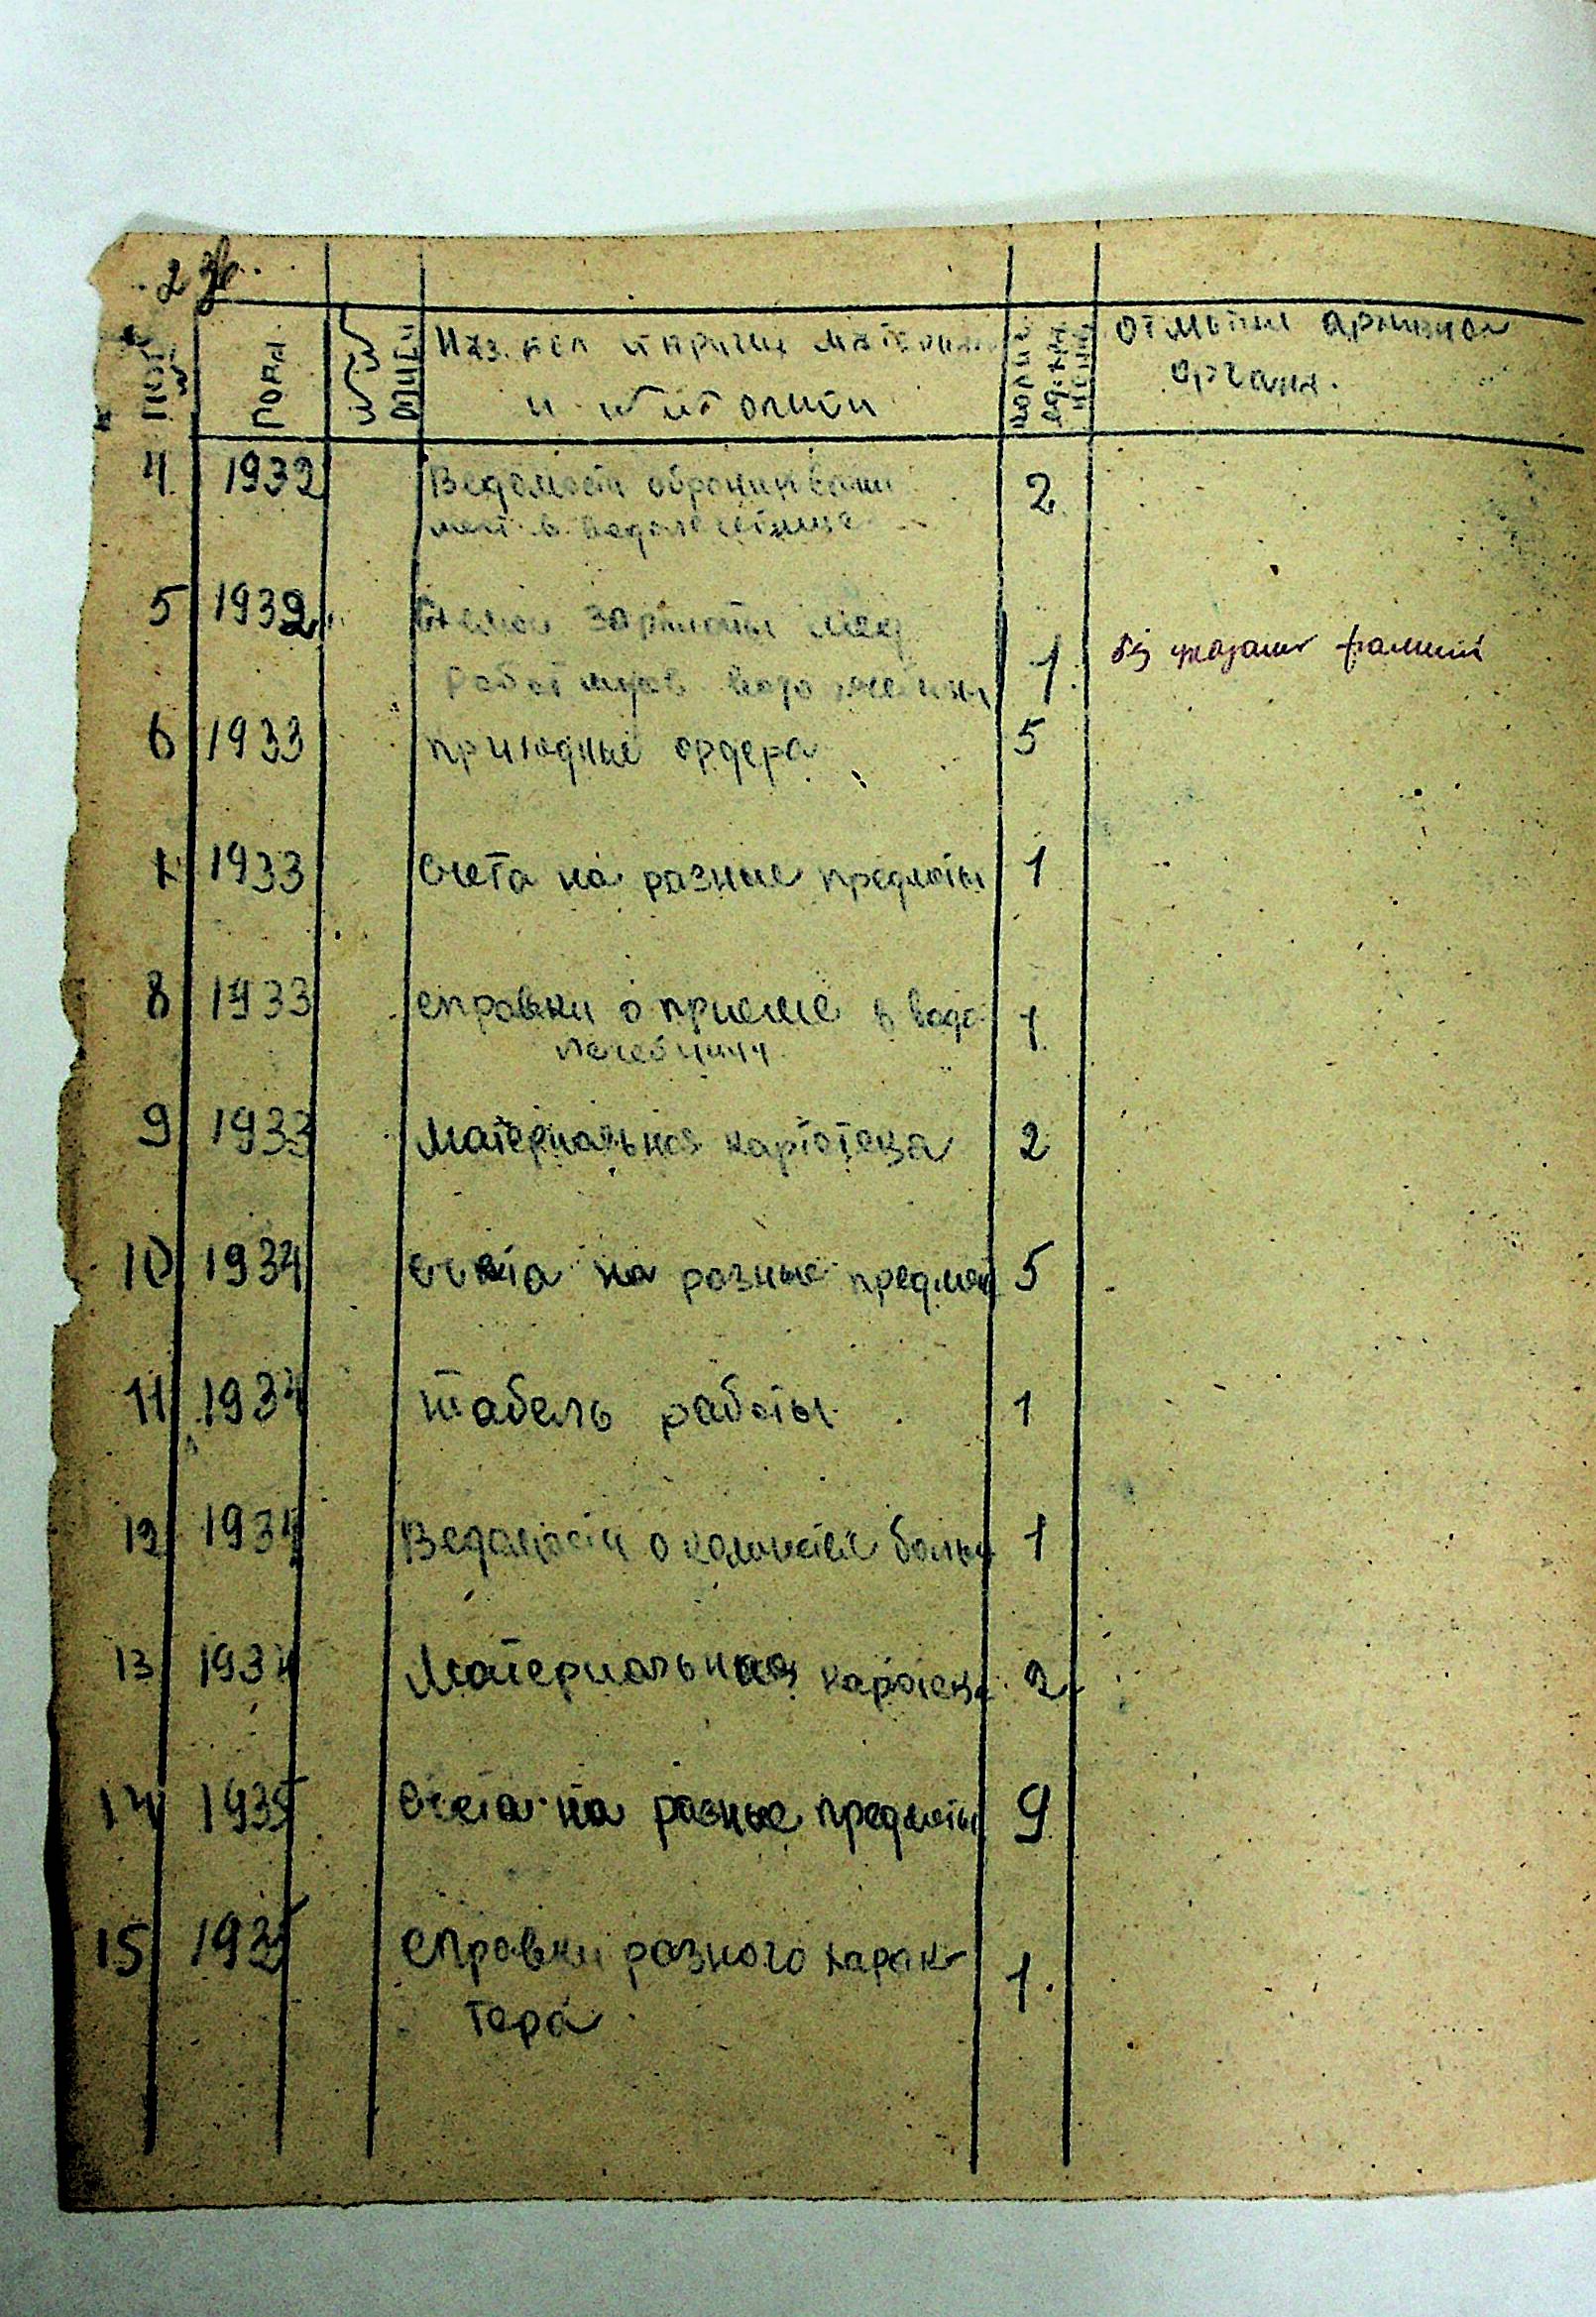 2
Года
Наз. дел и других матер
и
отметки архивного
органа.
4 1932 Ведомости 2
в водолечебнице
5 1932 зарплаты мед
работников водолечебницы 1 без указания фамилий
6 1933 приходные ордера 5
1933 Счета на разные предметы 1
8 1933 справки о приеме в водо
лечебницу 1
9 1933 Материальная картотека 2
10 1934 счета на разные предмет 5
11 1934 табель работы 1
12 1934 Ведомости о количестве больн 1
13 1934 Материальная картотека 2
14 1935 Счета на разные предметы 9
15 1935 справки разного харак
тера 1